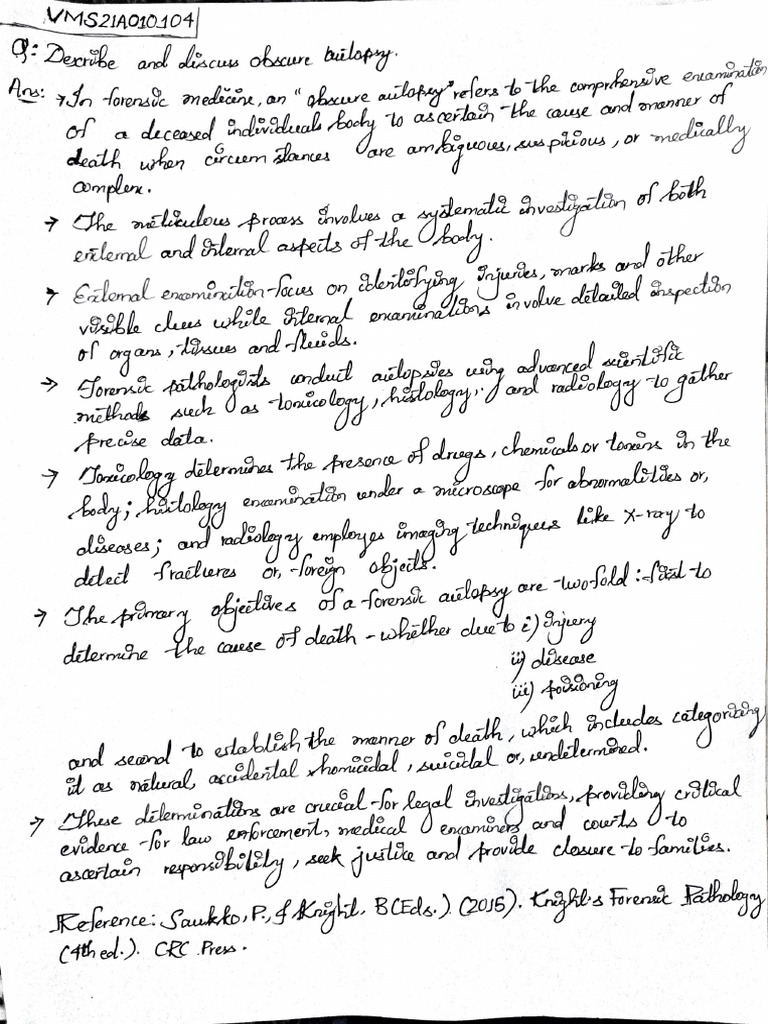 VMS21A010104
Q: Describe and discuss obscure autopsy.
Ans: → In forensic medicine, an "obscure autopsy" refers to the comprehensive examination
of a deceased individuals body to ascertain the cause and manner of
death when circumstances are ambiguous, suspicious, or medically
complex.
→ The meticulous process involves a systematic investigation of both
external and internal aspects of the body.
→ External examination focus on identifying injuries, marks and other
visible clues while internal examinations involve detailed inspection
of organs, tissues and fluids.
→ Forensic pathologists conduct autopsies using advanced scientific
methods such as toxicology, histology, and radiology to gather
precise data.
→ Toxicology determines the presence of drugs, chemicals or toxins in the
body; histology examination under a microscope for abnormalities or,
diseases; and radiology employes imaging techniques like X-ray to
detect fractures or, foreign objects.
→ The primary objectives of a forensic autopsy are two fold: first to
determine the cause of death - whether due to i) injury
ii) disease
iii) poisioning
and second to establish the manner of death, which includes categorizing
it as natural, accidental, homicidal, suicidal or, undetermined.
→ These determinations are crucial for legal investigations, providing critical
evidence for law enforcement, medical examiners and courts to
ascertain responsibility, seek justice and provide closure to families.
Reference: Saukko, P., & Knight, B (Eds.). (2015). Knight's Forensic Pathology
(4th ed.). CRC Press.